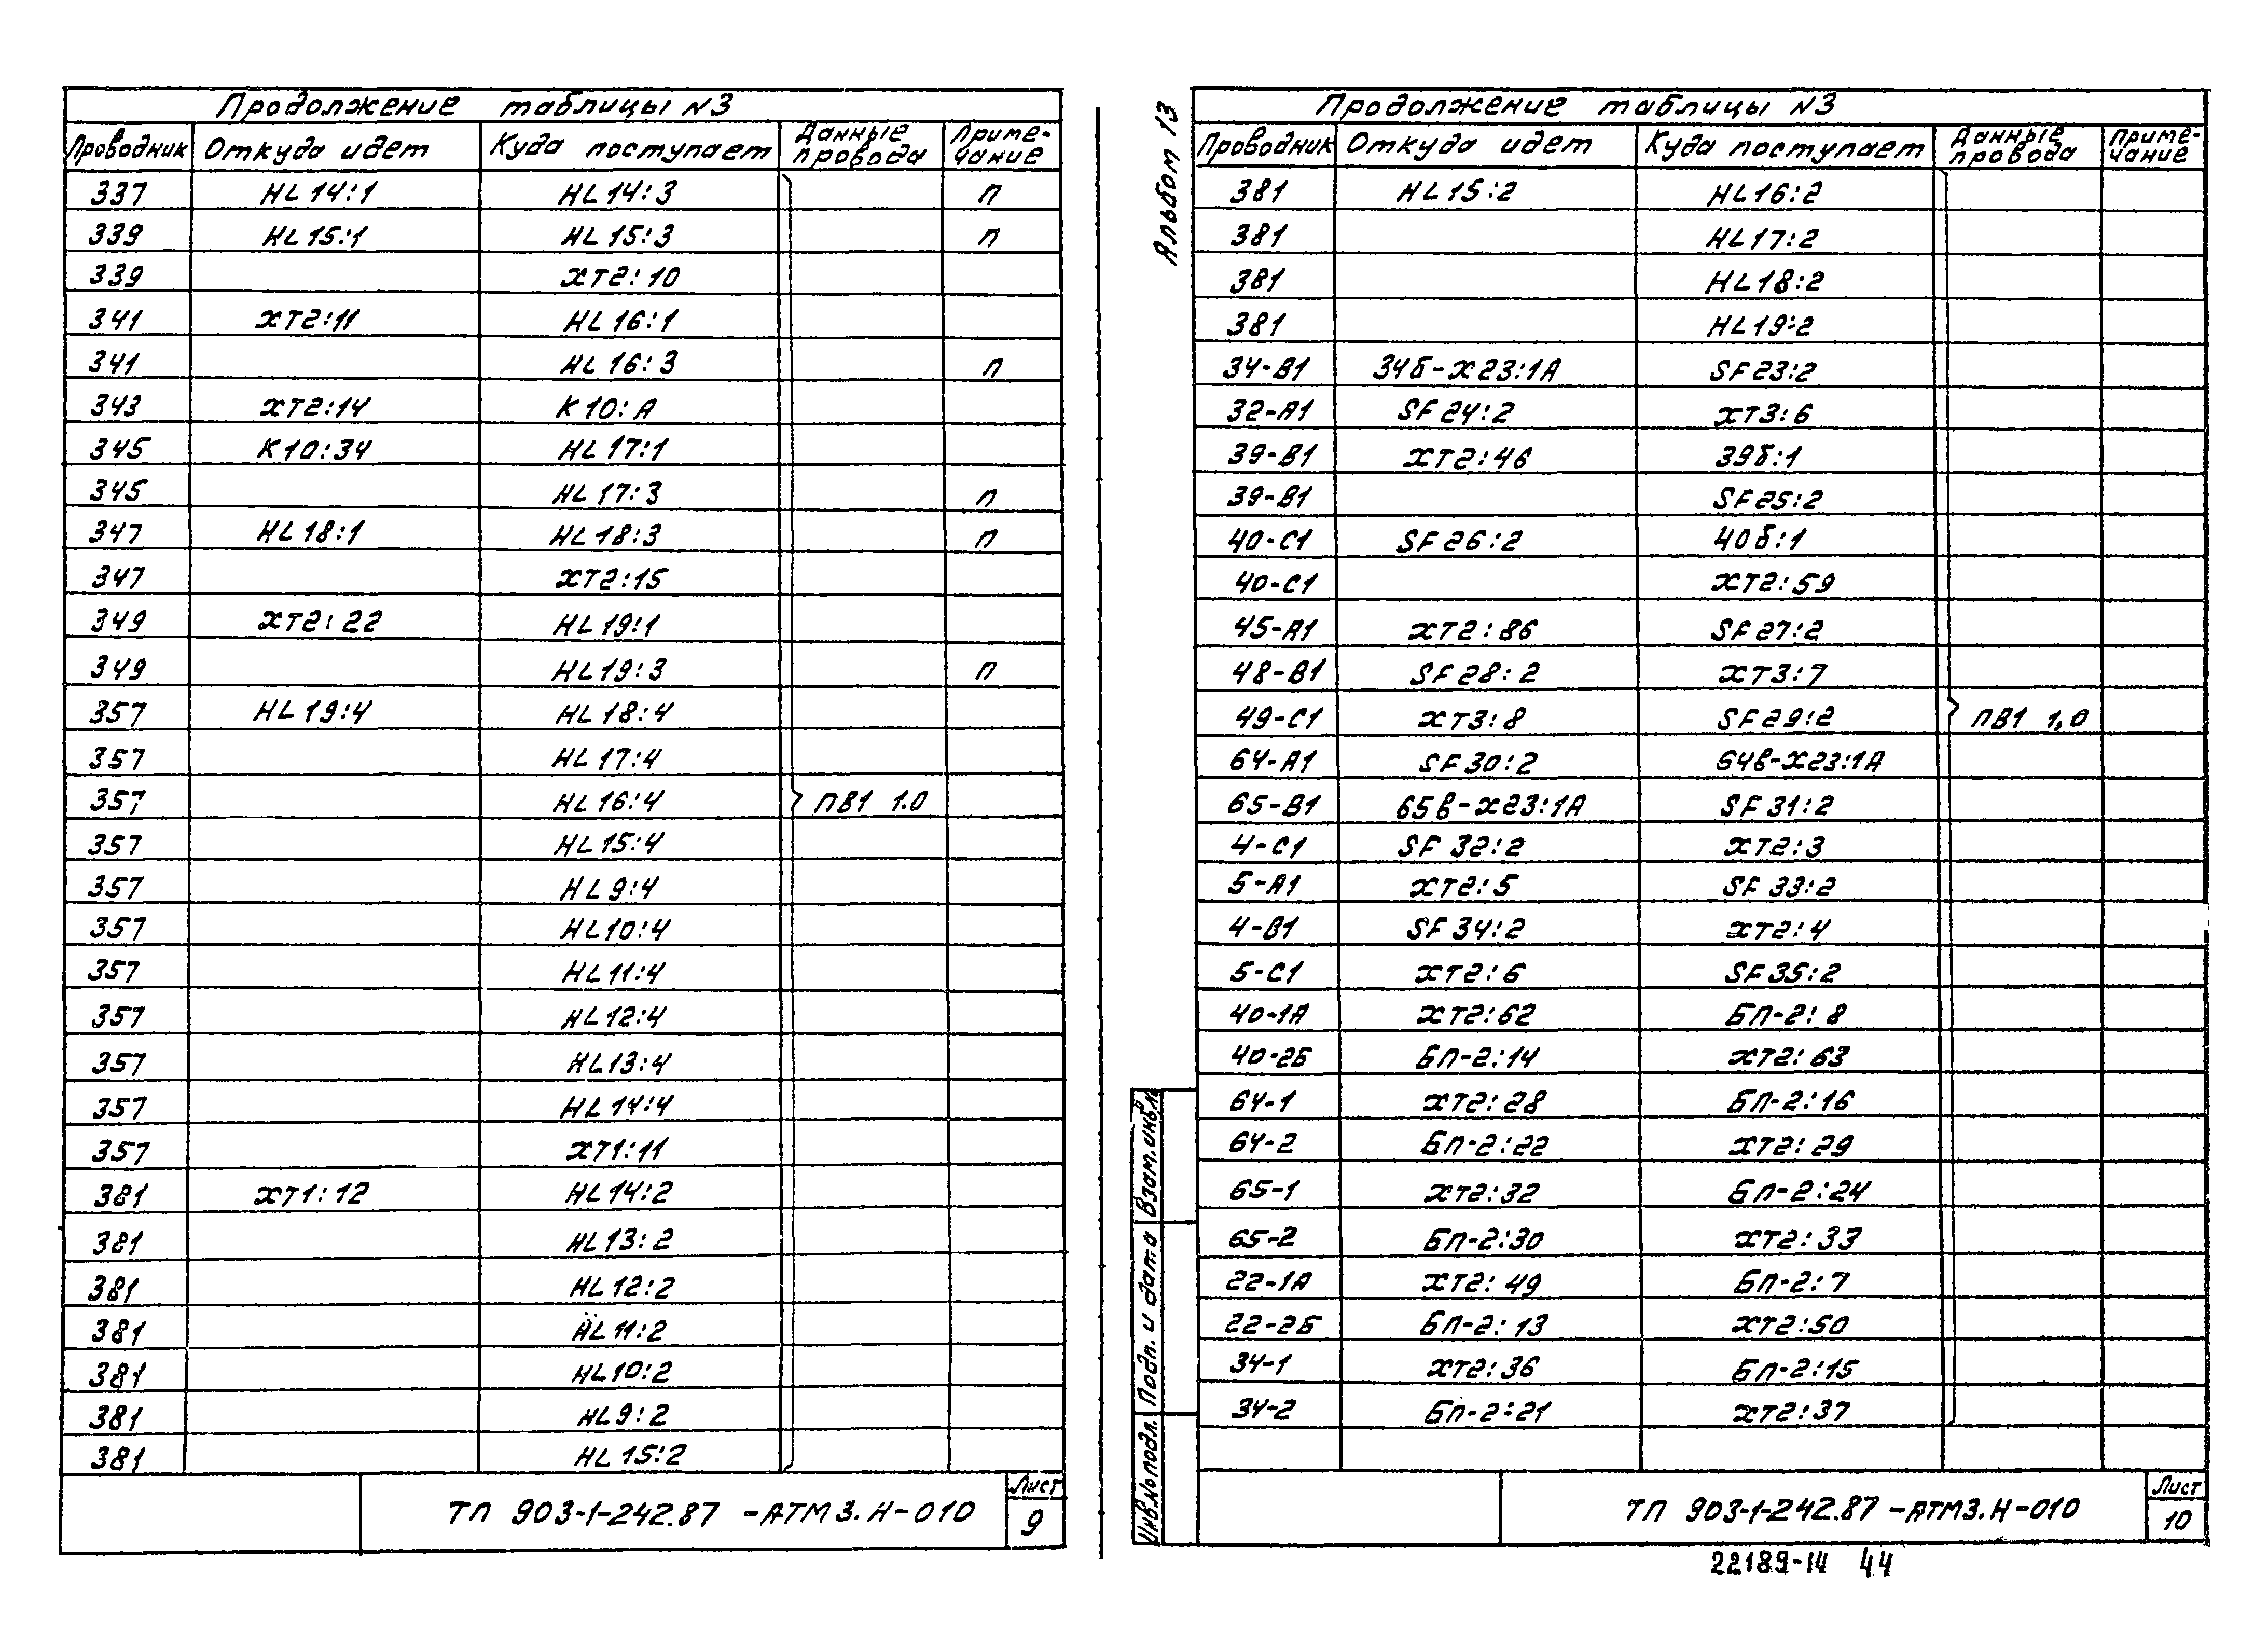 Продолжение таблицы N3
Проводник Откуда идет Куда поступает Данные провода Примечание
337 HL14:1 HL14:3 п
339 HL15:1 HL15:3 п
339 XT2:10
341 XT2:11 HL16:1
341 HL16:3 п
343 XT2:14 K10:A
345 K10:34 HL17:1
345 HL17:3 п
347 HL18:1 HL18:3 п
347 XT2:15
349 XT2:22 HL19:1
349 HL19:3 п
357 HL19:4 HL18:4
357 HL17:4
357 HL16:4 ПВ1 1.0
357 HL15:4
357 HL9:4
357 HL10:4
357 HL11:4
357 HL12:4
357 HL13:4
357 HL14:4
357 XT1:11
381 XT1:12 HL14:2
381 HL13:2
381 HL12:2
381 HL11:2
381 HL10:2
381 HL9:2
381 HL15:2
ТП 903-1-242.87 -АТМ3.Н-010
Лист
9
Альбом 13
Продолжение таблицы N3
Проводник Откуда идет Куда поступает Данные провода Примечание
381 HL15:2 HL16:2
381 HL17:2
381 HL18:2
381 HL19:2
34-В1 34б-X23:1А SF23:2
32-А1 SF24:2 XT3:6
39-В1 XT2:46 39б:1
39-В1 SF25:2
40-С1 SF26:2 40б:1
40-С1 XT2:59
45-А1 XT2:86 SF27:2
48-В1 SF28:2 XT3:7
49-С1 XT3:8 SF29:2 ПВ1 1,0
64-А1 SF30:2 64в-X23:1А
65-В1 65в-X23:1А SF31:2
4-С1 SF32:2 XT2:3
5-А1 XT2:5 SF33:2
4-В1 SF34:2 XT2:4
5-С1 XT2:6 SF35:2
40-1А XT2:62 БП-2:8
40-2Б БП-2:14 XT2:63
64-1 XT2:28 БП-2:16
64-2 БП-2:22 XT2:29
65-1 XT2:32 БП-2:24
65-2 БП-2:30 XT2:33
22-1А XT2:49 БП-2:7
22-2Б БП-2:13 XT2:50
34-1 XT2:36 БП-2:15
34-2 БП-2:21 XT2:37
Взам.инв.N
Подп. и дата
Инв.№подл.
ТП 903-1-242.87 -АТМ3.Н-010
Лист
10
22189-14 44